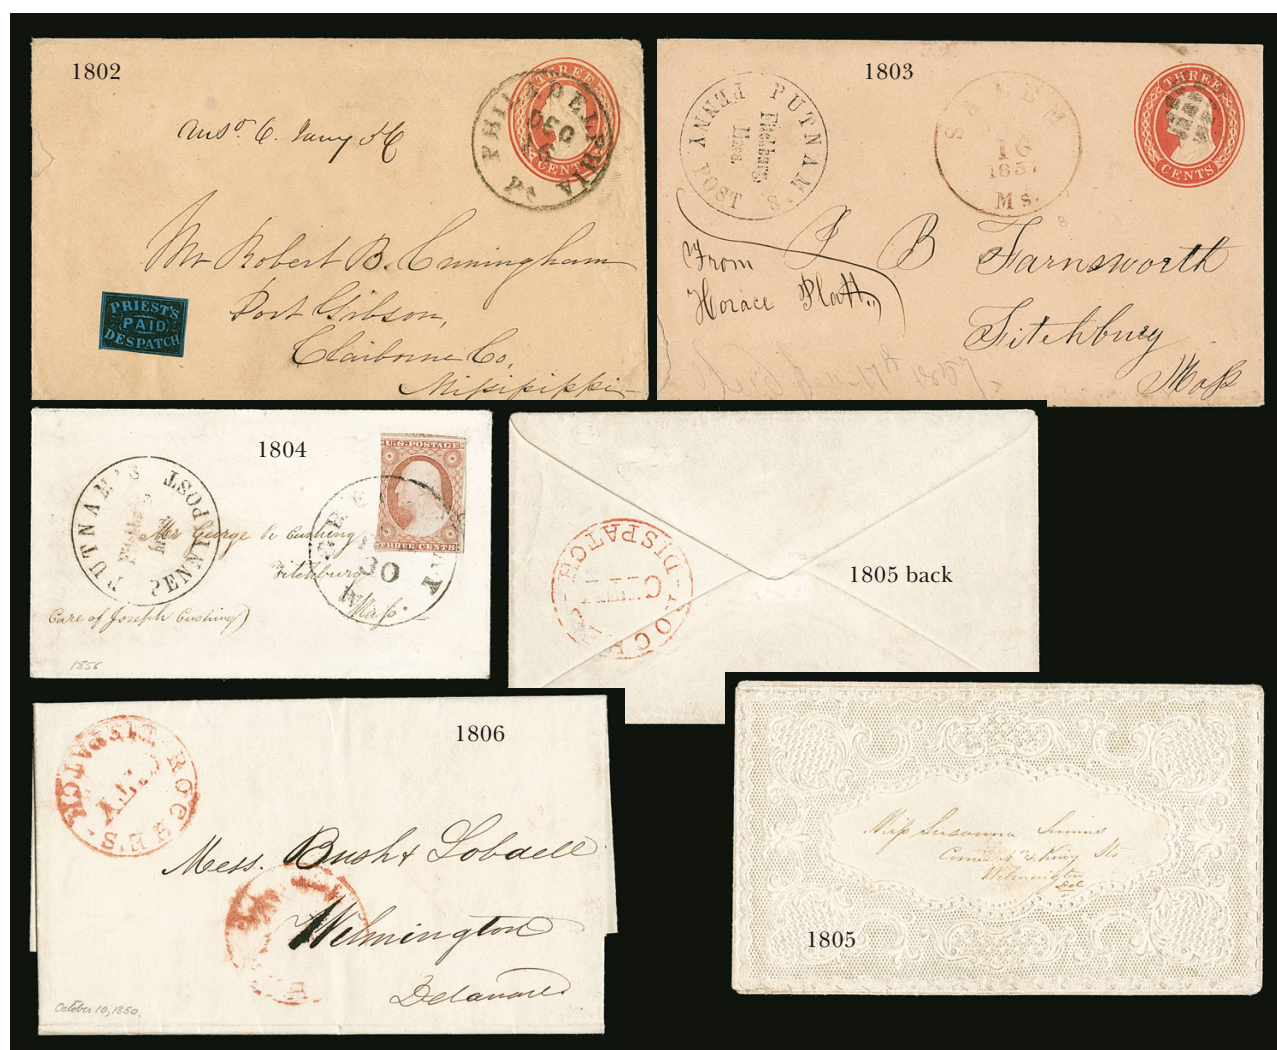 1802
THREE
CENTS
PHILADELPHIA
DEC
16
Pa
Mr Robert B. Cunningham
Port Gibson,
Claiborne Co,
Missisippi
PRIEST'S
PAID
DESPATCH
1803
PUTNAM'S
PENNY POST
Fitchburg,
Mass.
SALEM
16
1857
Ms.
THREE
CENTS
8
From
Horace Platt.
J B Farnsworth
Fitchburg
Mass
1804
PUTNAM'S
PENNY POST
U.S. POSTAGE
THREE CENTS
30
Mr George R Cushing
Fitchburg
Mass.
Care of Joseph Cushing)
1856
1805 back
ROCHE'S
CITY
DISPATCH
1806
ROCHE'S
CITY
DISPATCH
Mess. Bush & Lobdell
Wilmington
Delaware
October 10, 1850.
1805
Miss Susanna
King Sts
Wilmington
Del